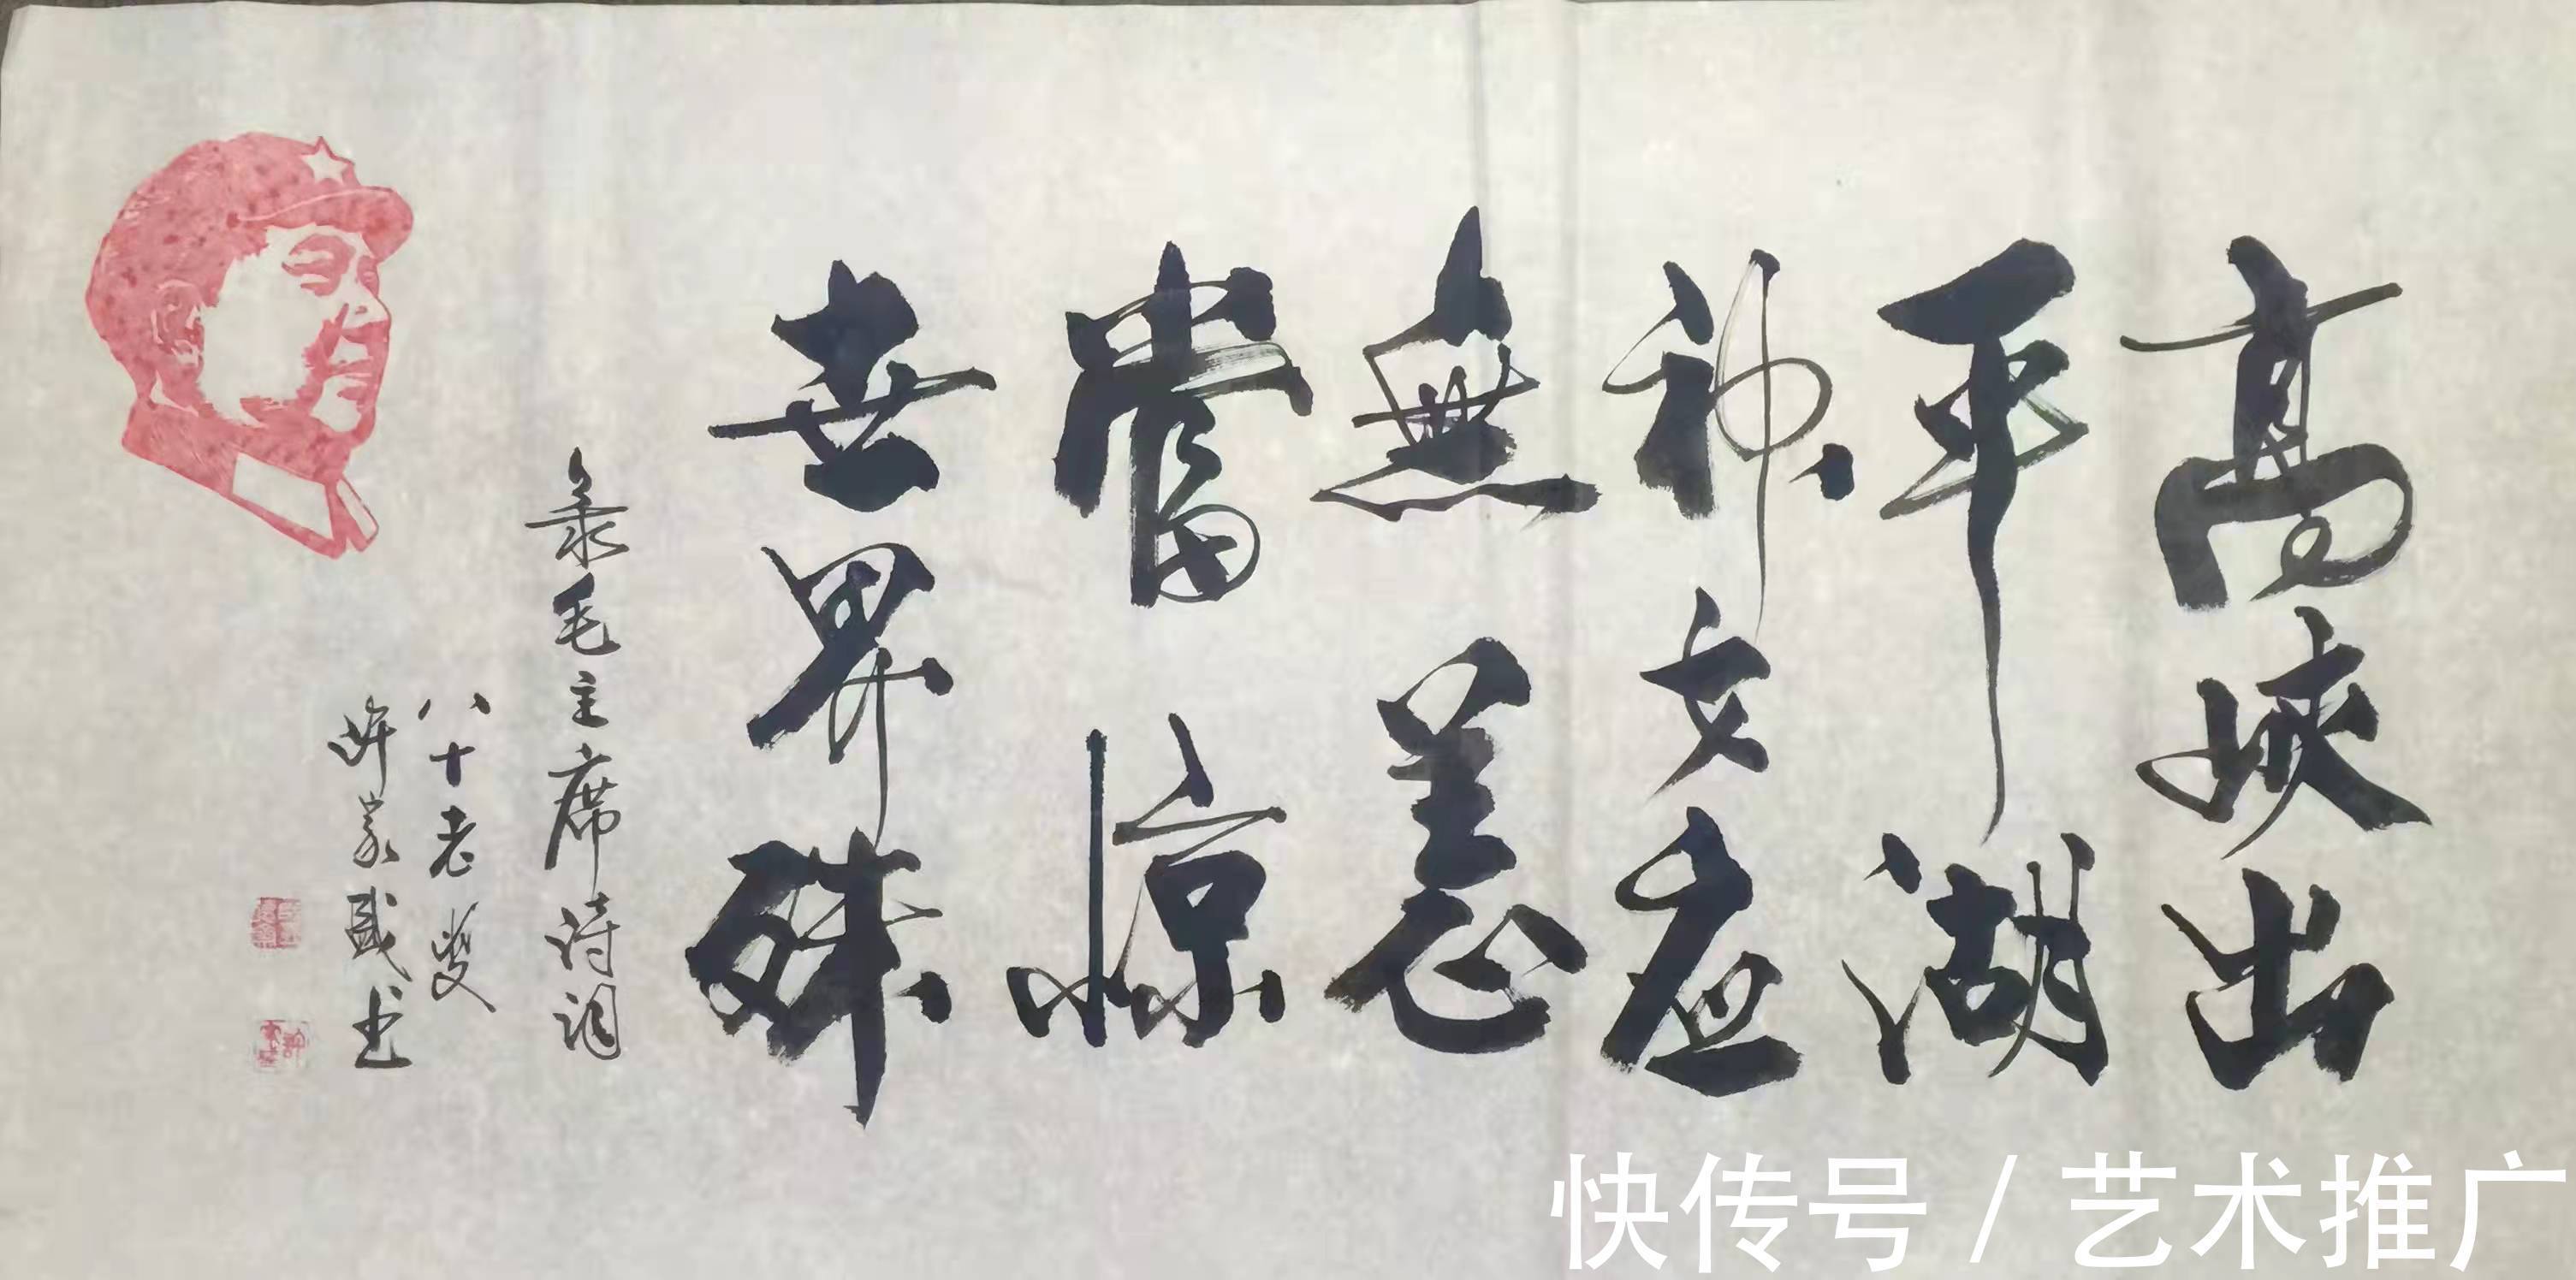 高峡出
平湖
神女应
無恙
當惊
世界殊
录毛主席诗词
八十老叟
许家盛书
快传号 / 艺术推广